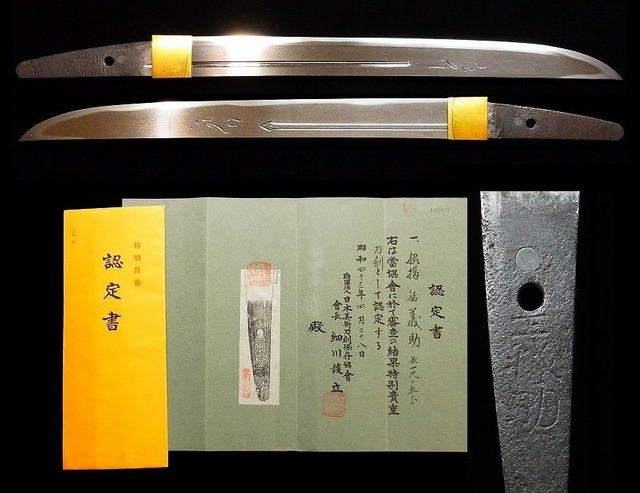 特別貴重
認定書
認定書
一、脇指 銘 義助 長一尺〇五分
右は當協會に於て審査の結果特別貴重
刀剣として認定する
昭和四十三年四月二十八日
財團法人日本美術刀剣保存協會
會長 細川護立
殿
義助